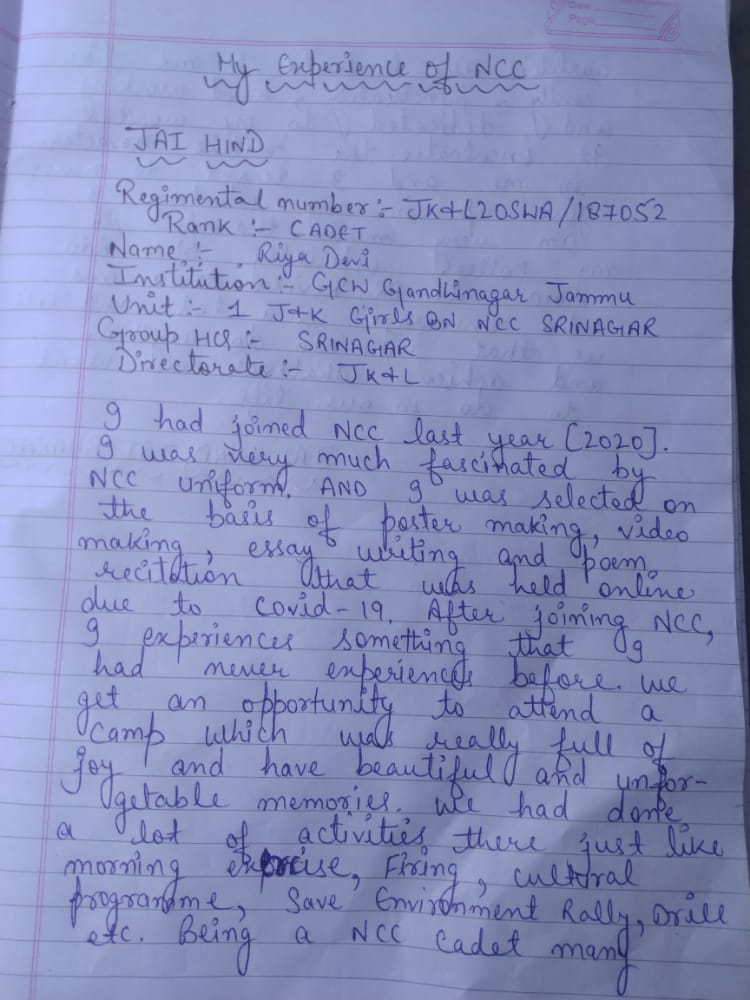 Date
Page
My Experience of NCC
JAI HIND
Regimental number :- JK&L20SWA/187052
Rank :- CADET
Name :- Riya Devi
Institution :- GCW Gandhinagar Jammu
Unit :- 1 J&K Girls BN NCC SRINAGAR
Group HQs :- SRINAGAR
Directorate :- JK&L
I had joined NCC last year [2020].
I was very much fascinated by
NCC uniform. AND I was selected on
the basis of poster making, video
making, essay writing and poem
recitation that was held online
due to covid-19. After joining NCC,
I experiences something that I
had never experiences before. We
get an opportunity to attend a
camp which was really full of
joy and have beautiful and unfor-
getable memories. We had done
a lot of activities there just like
morning exercise, Firing, cultural
programme, Save Environment Rally, Drill
etc. Being a NCC Cadet many